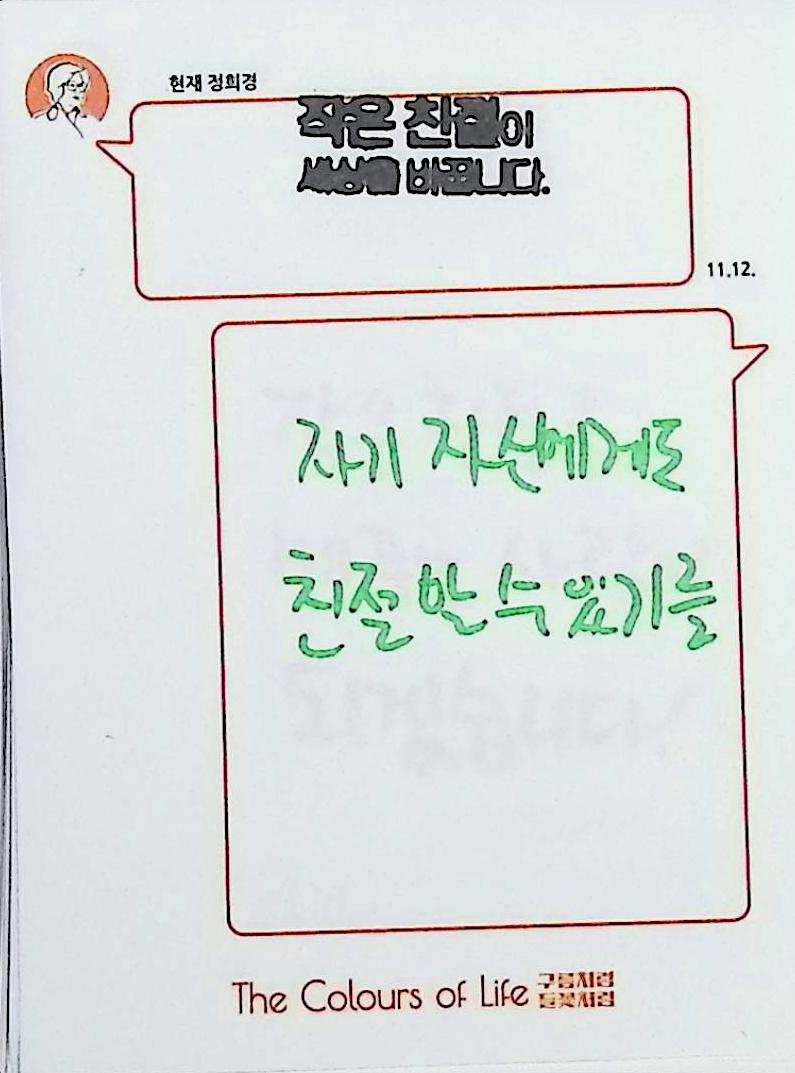 현재 정희경
작은 친절이
세상을 바꿉니다.
11.12.
자기 자신에게도
친절할 수 있기를
The Colours of Life 구름처럼
들꽃처럼